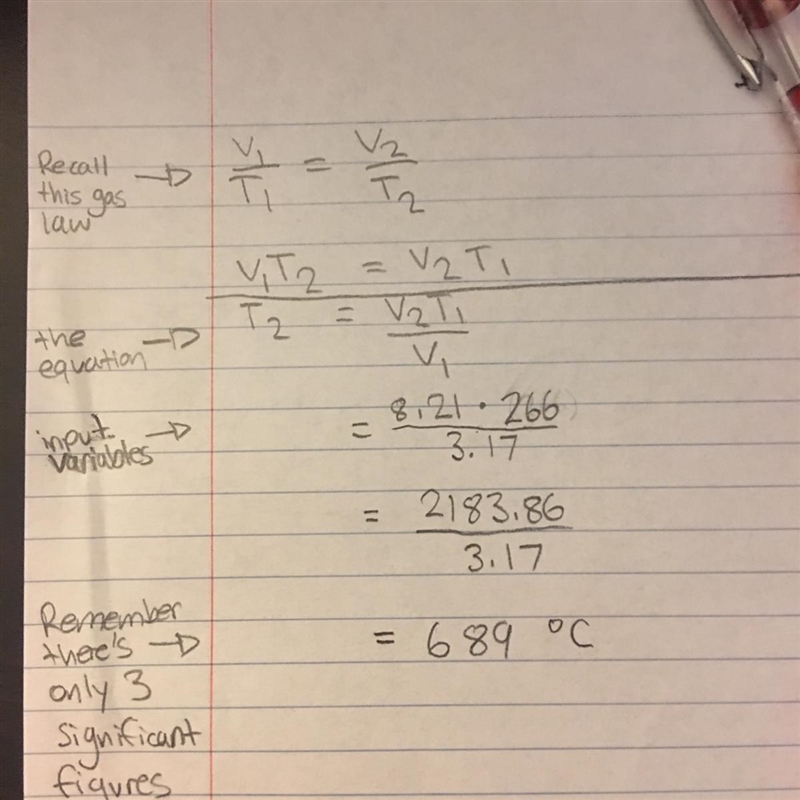 Recall
this gas
law
V1/T1 = V2/T2
V1T2 = V2T1
the
equation
T2 = V2T1/V1
input
variables
= 8.21 · 266/3.17
= 2183.86/3.17
Remember
there's
only 3
significant
figures
= 689 °C